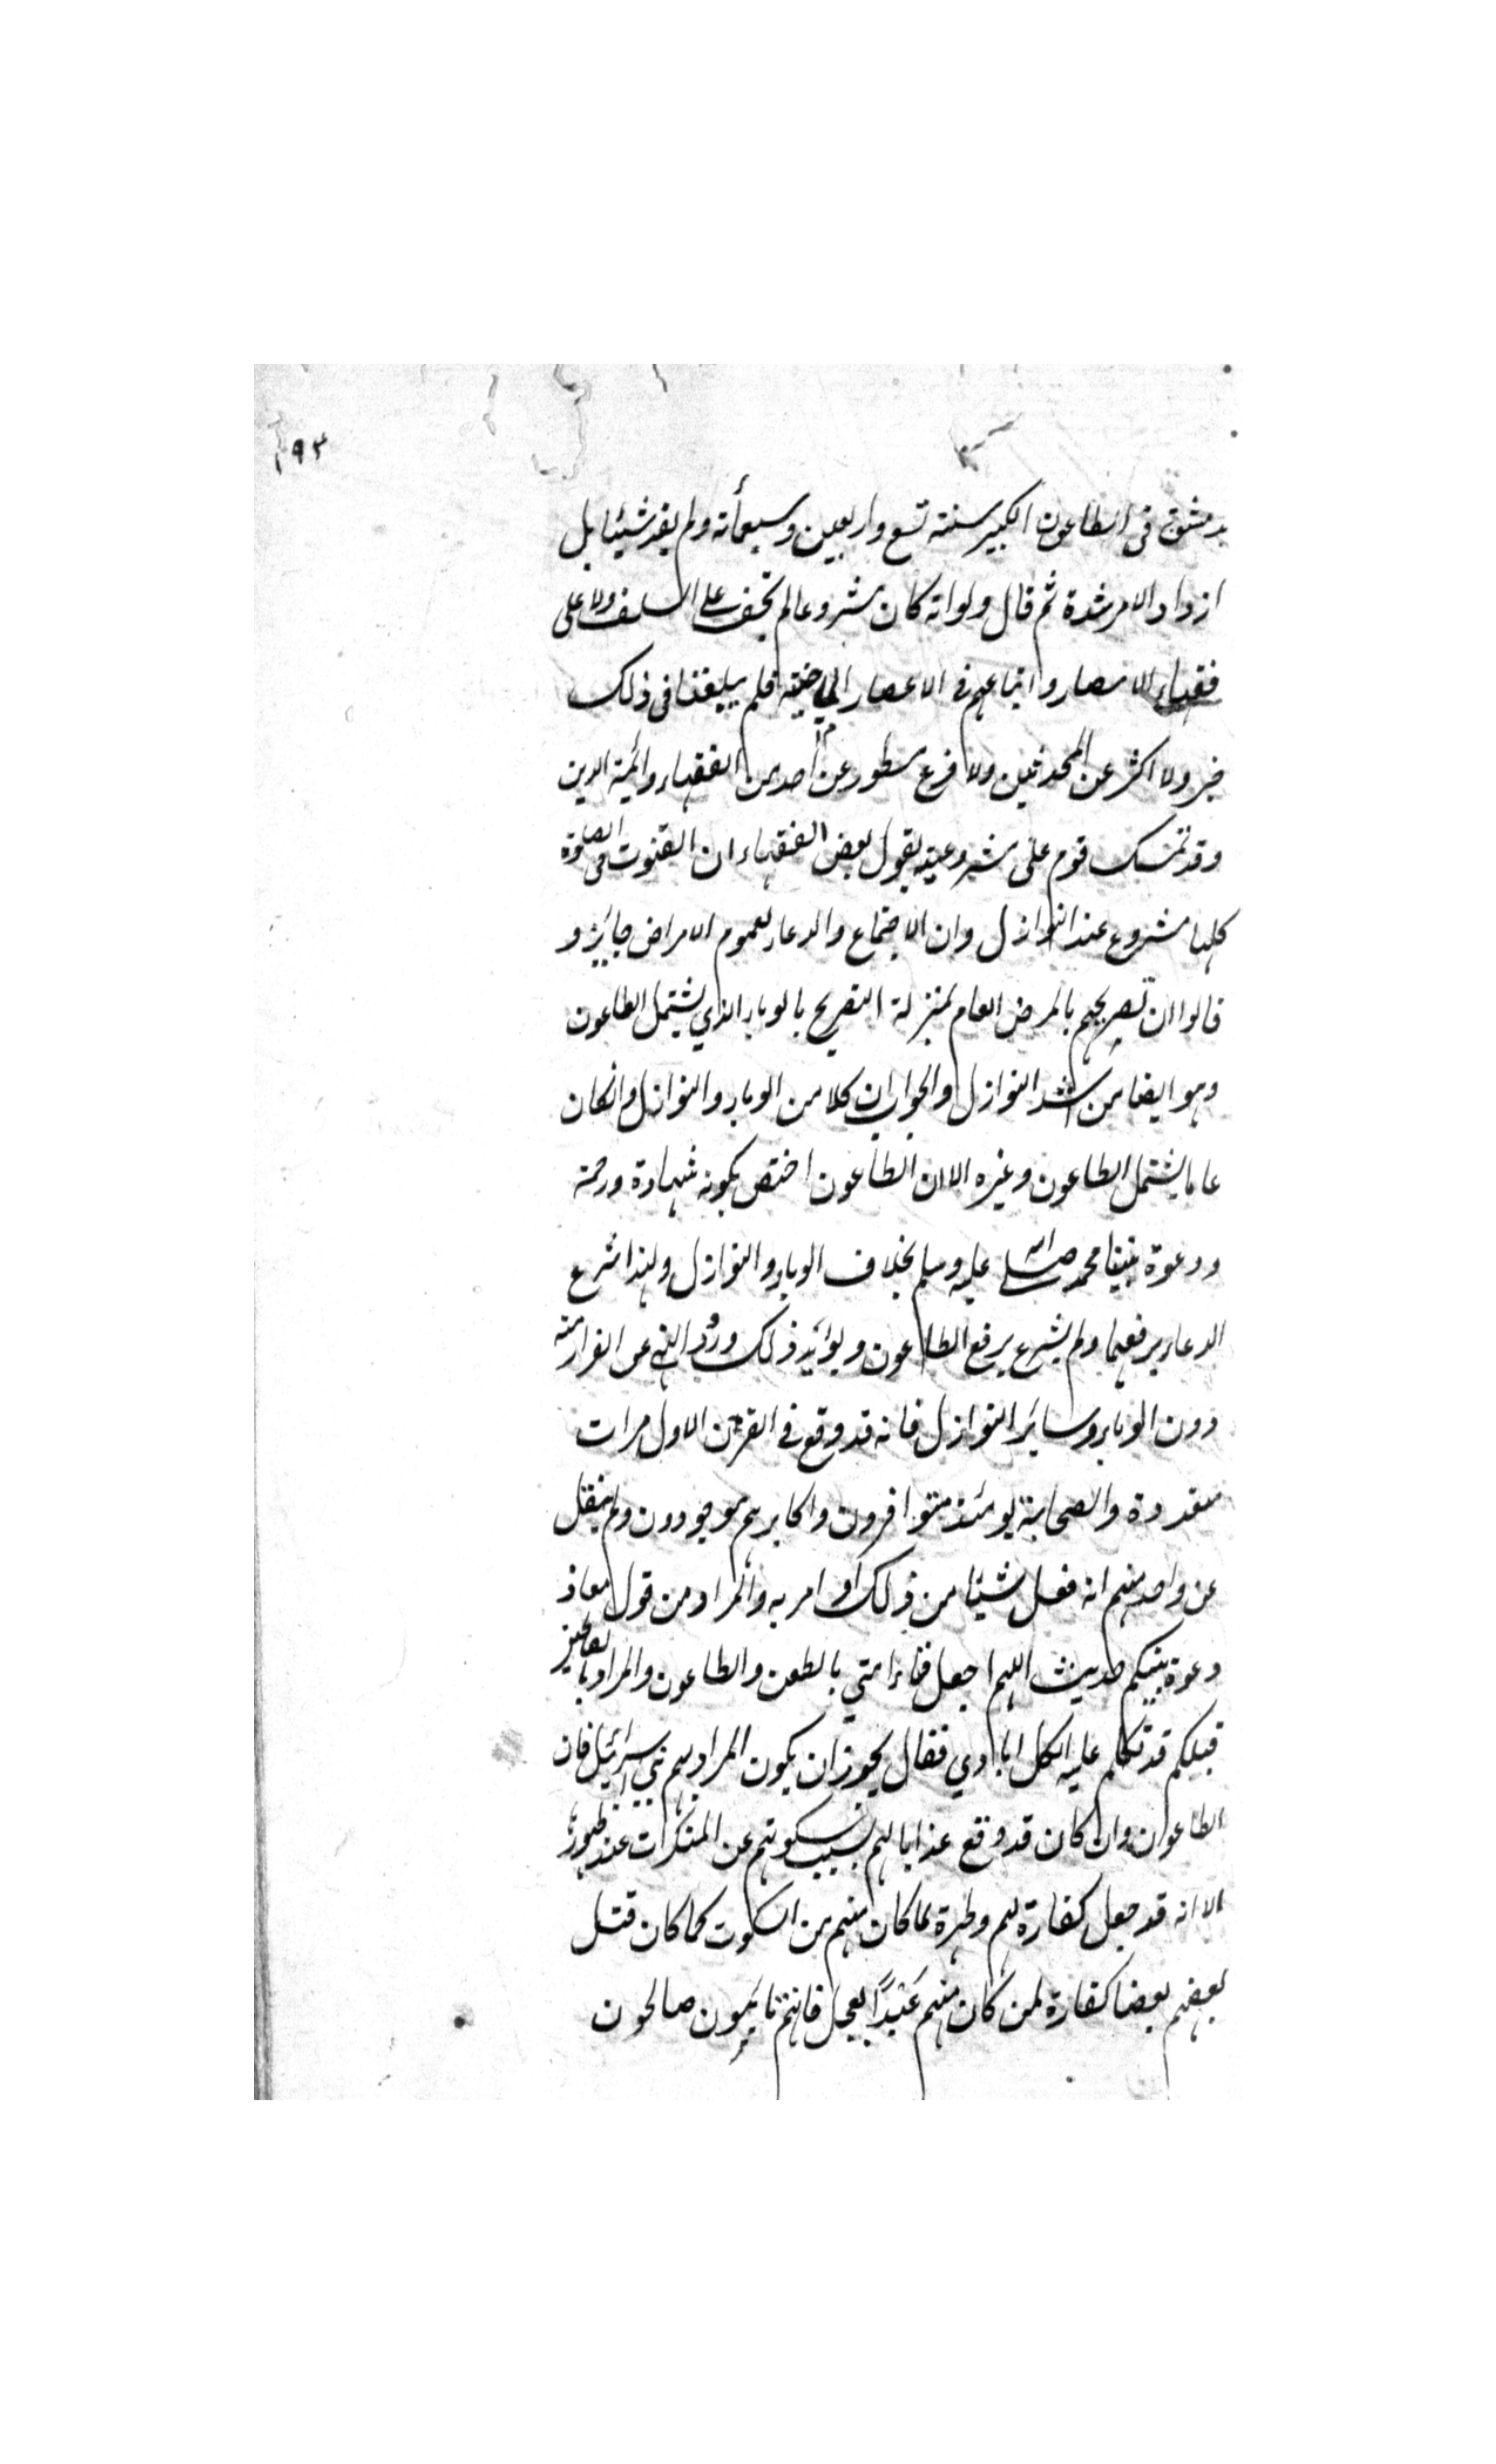 ١٩٣
بدمشق فى الطاعون الكبير سنة تسع واربعين وسبعمأته ولم يفد شيئا بل
ازداد الامر شدة ثم قال ولوانه كان مشروعا لم يخف على السلف ولا على
فقهاء الامصار واتباعهم فى الاعصار الماضية فلم يبلغنا فى ذلك
خبر ولا اثر عن المحدثين ولا فرع مسطور عن احد من الفقهاء وائمة الدين
وقد تمسك قوم على مشروعيته بقول بعض الفقهاء ان القنوت فى الصلوة
كلها مشروع عند النوازل وان الاجتماع والدعاء لعموم الامراض جائز و
قالوا ان تصريحهم بالمرض العام بمنزلة التصريح بالوباء الذي يشتمل الطاعون
وهو ايضا من اشد النوازل والجواب ان كلا من الوباء والنوازل وانكان
عاما يشتمل الطاعون وغيره الا ان الطاعون اختص بكونه شهادة ورحمة
ودعوة نبينا محمد صلى الله عليه وسلم بخلاف الوباء والنوازل ولهذا شرع
الدعاء برفعهما ولم يشرع برفع الطاعون ويؤيد ذلك ورود النهى عن الفرار منه
دون الوباء وسائر النوازل فانه قد وقع فى القرن الاول مرات
متعددة والصحابة يومئذ متوافرون واكابرهم موجودون ولم ينقل
عن واحد منهم انه فعل شيئا من ذلك او امر به والمراد من قول معاذ
دعوة نبيكم حديث اللهم اجعل فناء امتي بالطعن والطاعون والمراد بالصالحين
قبلكم قد تكلم عليه الكلاباذي فقال يجوز ان يكون المراد بهم بني اسرائيل فان
الطاعون وان كان قد وقع عذابا لهم بسبب سكوتهم عن المنكرات عند ظهورها
الا انه قد جعل كفارة لهم وطهرة لما كان منهم من السكوت كما كان قتل
بعضهم بعضا كفارة لمن كان منهم عَبَدَ العجل فانتم تائبون صالحون